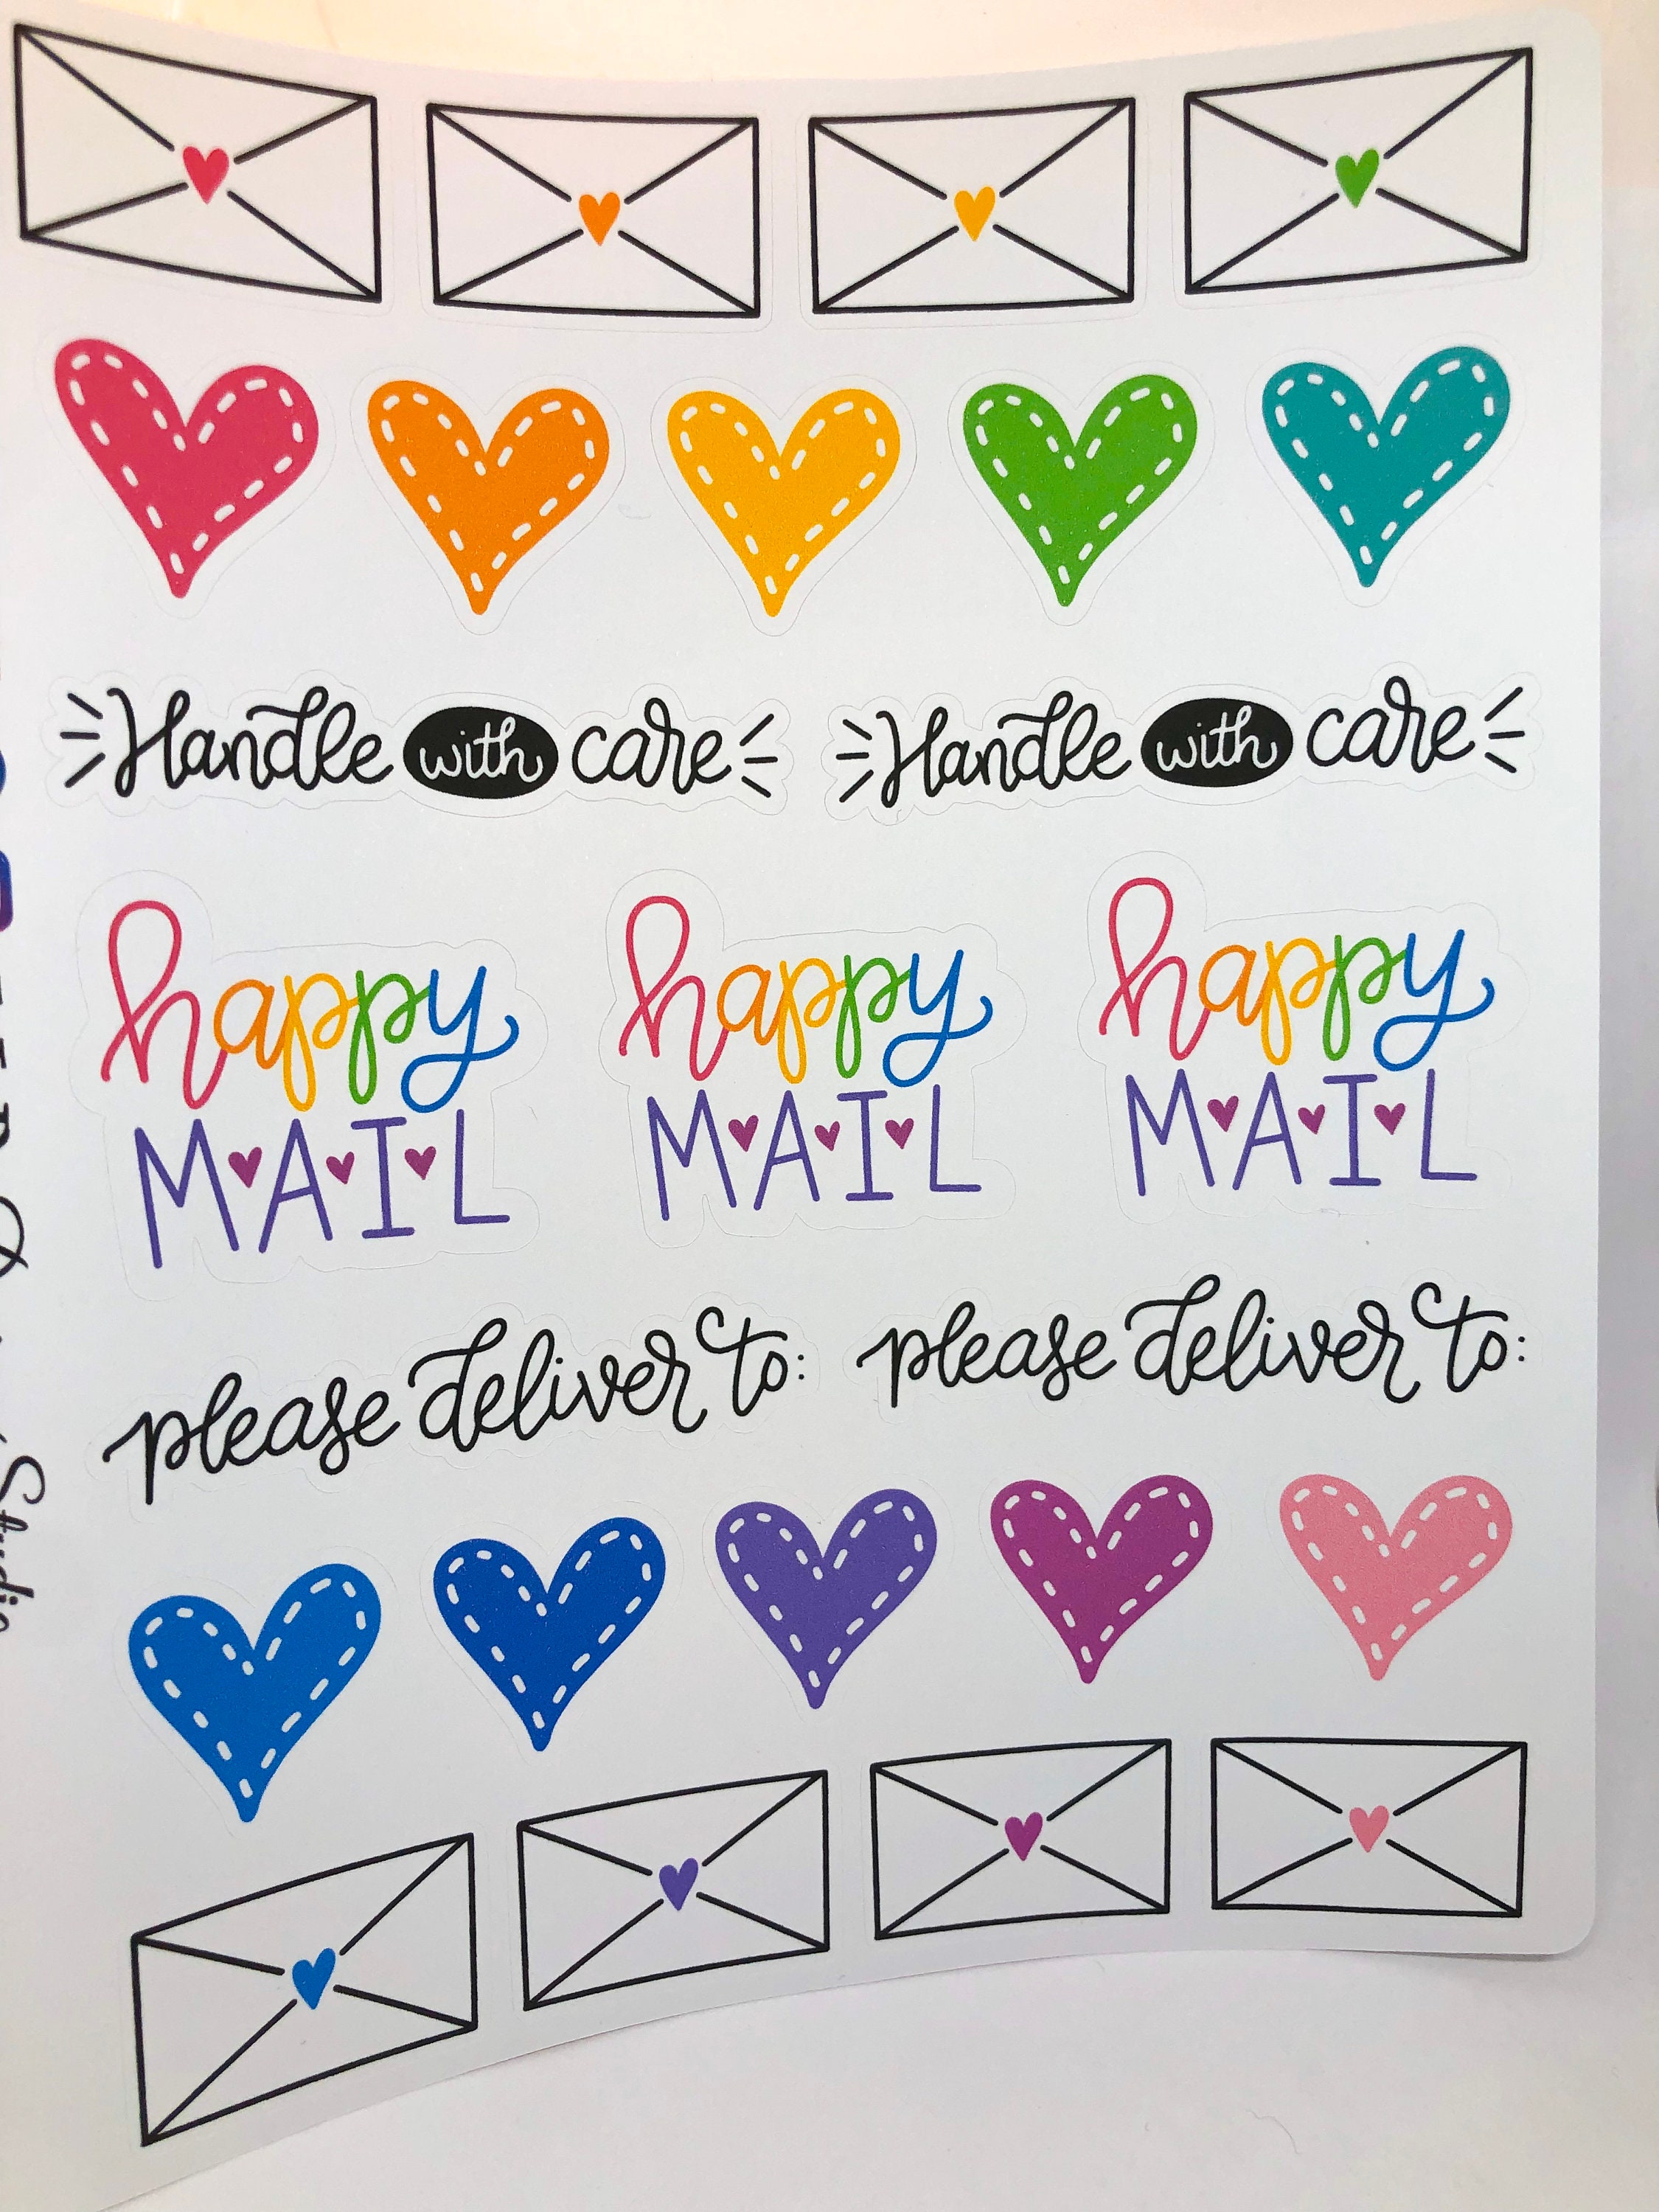 Handle with care
Handle with care
happy
MAIL
happy
MAIL
happy
MAIL
please deliver to:
please deliver to:
Studio